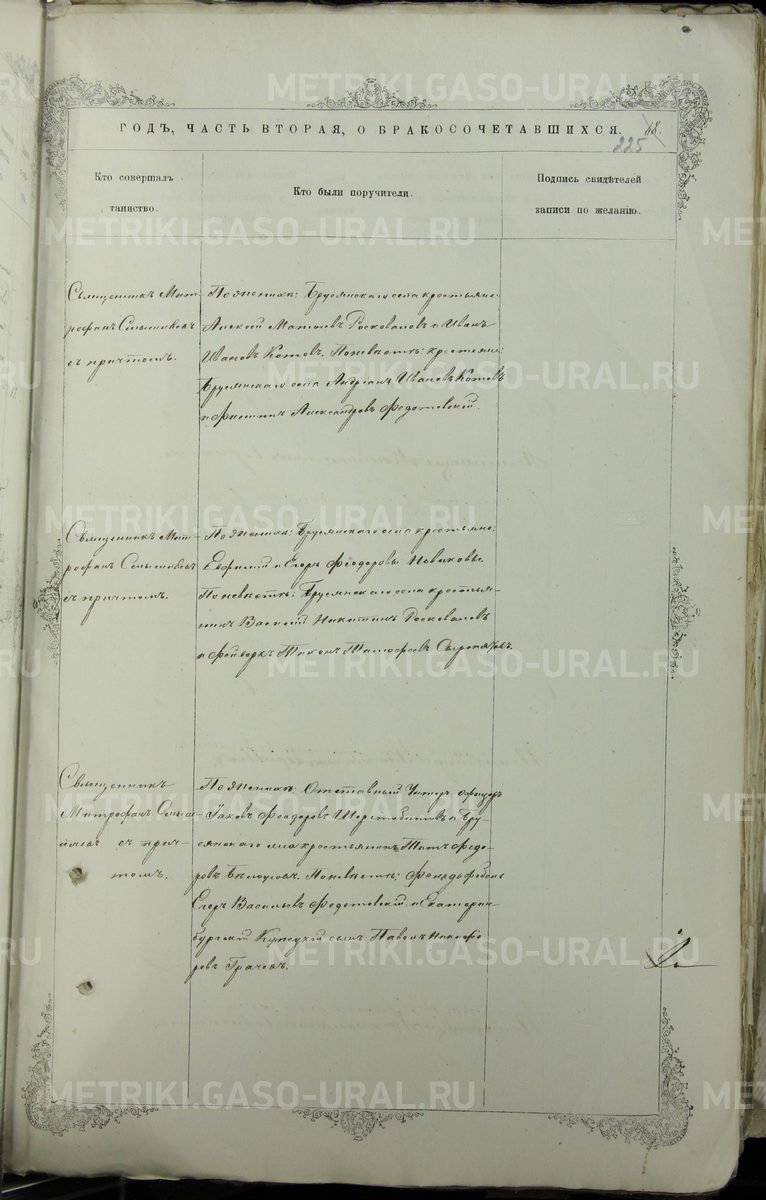 ГОДЪ, ЧАСТЬ ВТОРАЯ, О БРАКОСОЧЕТАВШИХСЯ.
68.
225
Кто совершалъ таинство.
Кто были поручители.
Подпись свидѣтелей записи по желанію.
Священникъ Мит-
рофанъ
съ причтомъ.
По женихѣ: Брусянскаго села крестьяне
Алексѣй Матвѣевъ и Иванъ
Ивановъ Котовъ. По невѣстѣ: крестьяне
Брусянскаго села Андрiанъ Ивановъ Котовъ
и Александровъ Федотовскій.
Священникъ Мит-
рофанъ
съ причтомъ.
По женихѣ: Брусянскаго села крестьяне
и Егоръ Феодоровы Новиковы.
По невѣстѣ: Брусянскаго села крестья-
нинъ Василій Никитинъ
и Тихонъ Тимофеевъ
Священникъ
Митрофанъ
съ прич-
томъ.
По женихѣ: Отставный Унтеръ офицеръ
Iаковъ Феодоровъ Шерстобитовъ и Бру-
сянскаго села крестьянинъ Титъ Федо-
ровъ Бѣлоусовъ. По невѣстѣ:
Егоръ Васильевъ Федотовскій и Екатерин-
бургскій Купецкій сынъ Павелъ Никифо
ровъ Грачевъ.
METRIKI.GASO-URAL.RU